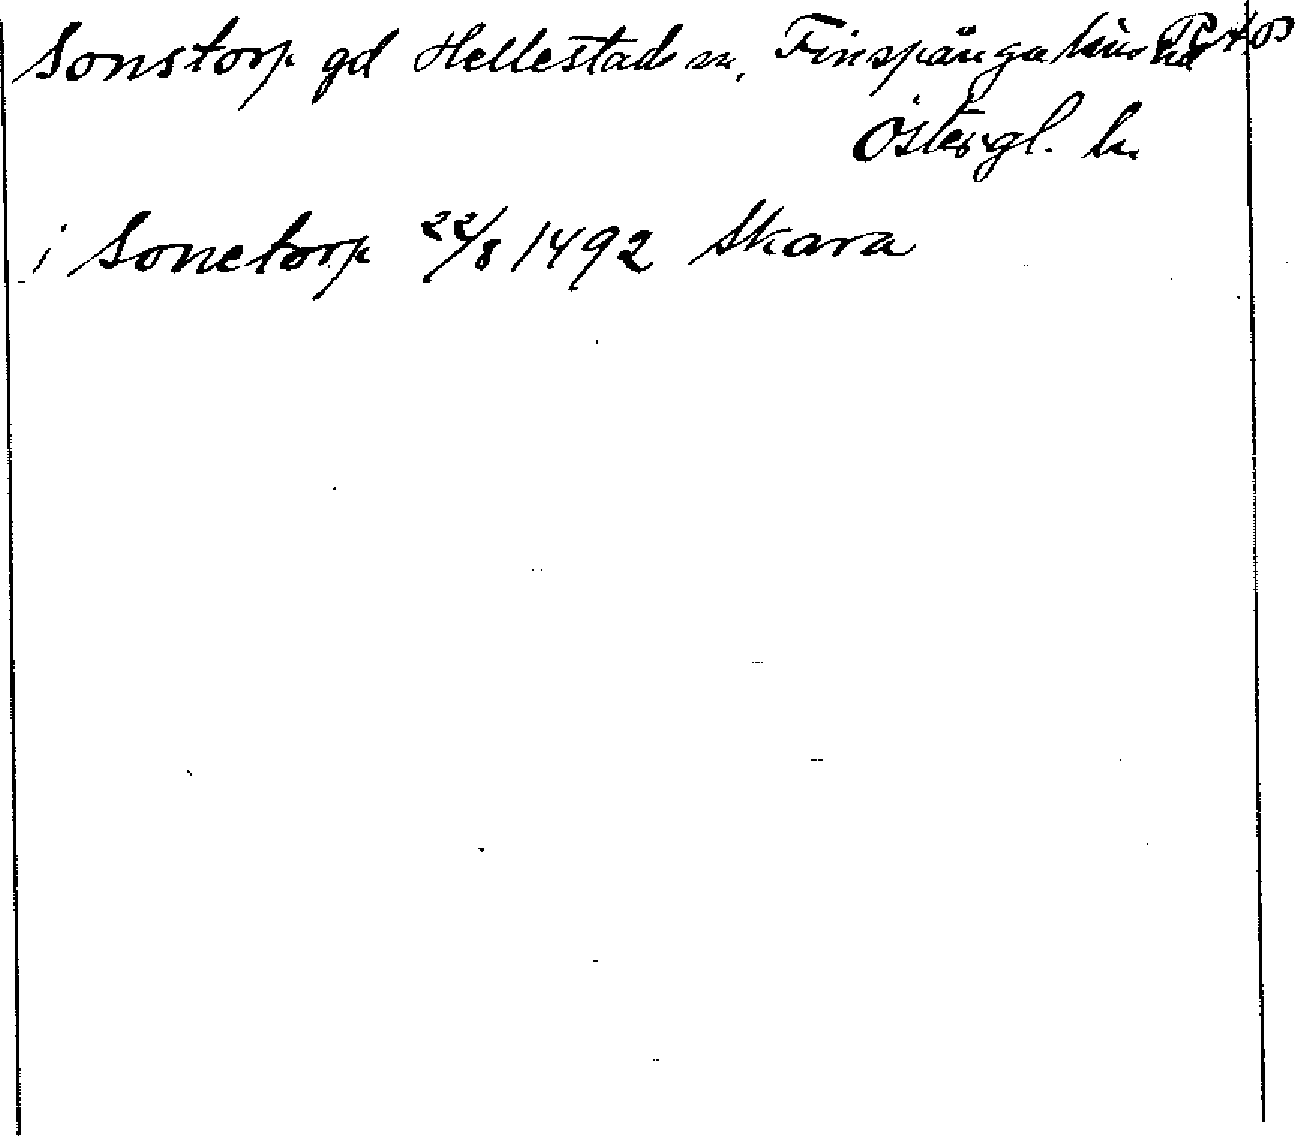 Sonstorp gd Hellestad sn, Finspånga läns hd
Östergl. l.
i Sonetorp 22/8 1492 Skara